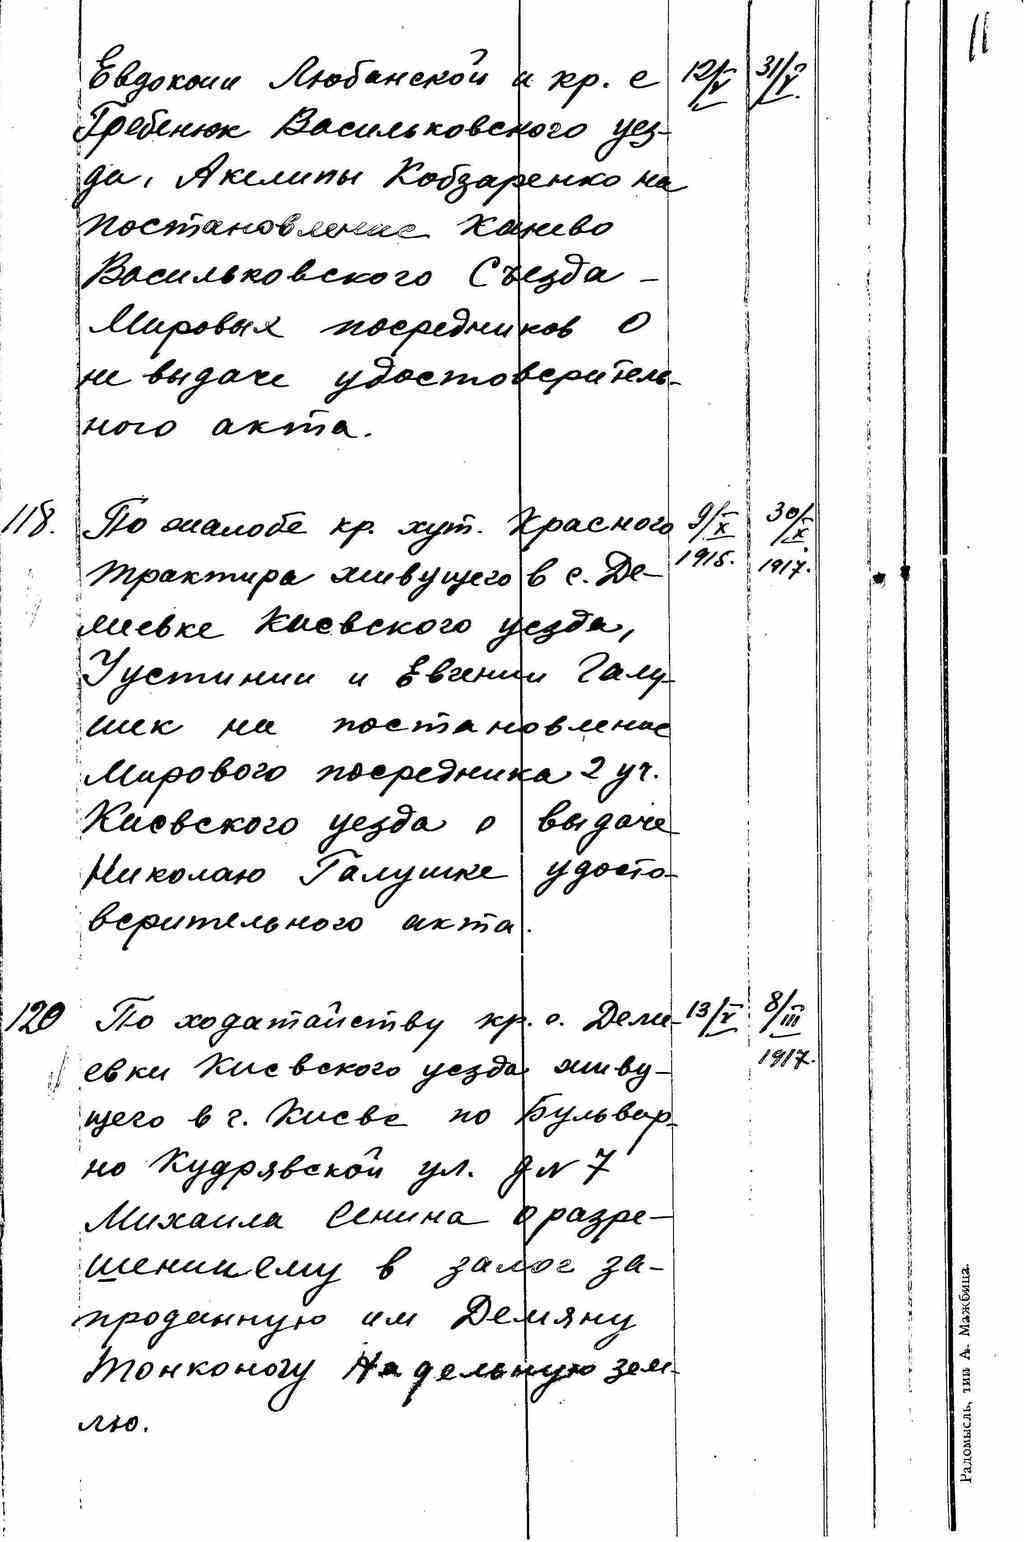 11
Евдокии Любанской и кр. с 12/V 31/V.
Гребенюк Васильковского уез-
да, Акилины Кобзаренко на
постановление Киево
Васильковского Съезда -
Мировых посредников о
не выдаче удостоверитель-
ного акта.
118. По жалобе кр. хут. Красного 9/X 1915. 30/X 1917.
трактира живущего в с. Де-
миевке Киевского уезда,
Устинии и Евгении Галу-
шек на постановление
Мирового посредника 2 уч.
Киевского уезда о выдаче
Николаю Галушке удосто-
верительного акта.
120 По ходатайству кр. с. Деми- 13/V 8/III 1917.
евки Киевского уезда живу-
щего в г. Киеве по Бульвар-
но Кудрявской ул. д N 7
Михаила Сенина о разре-
шении ему в залог за-
проданную им Демяну
Тонконогу Надельную зем-
лю.
Радомысль, тип А. Мажбица.